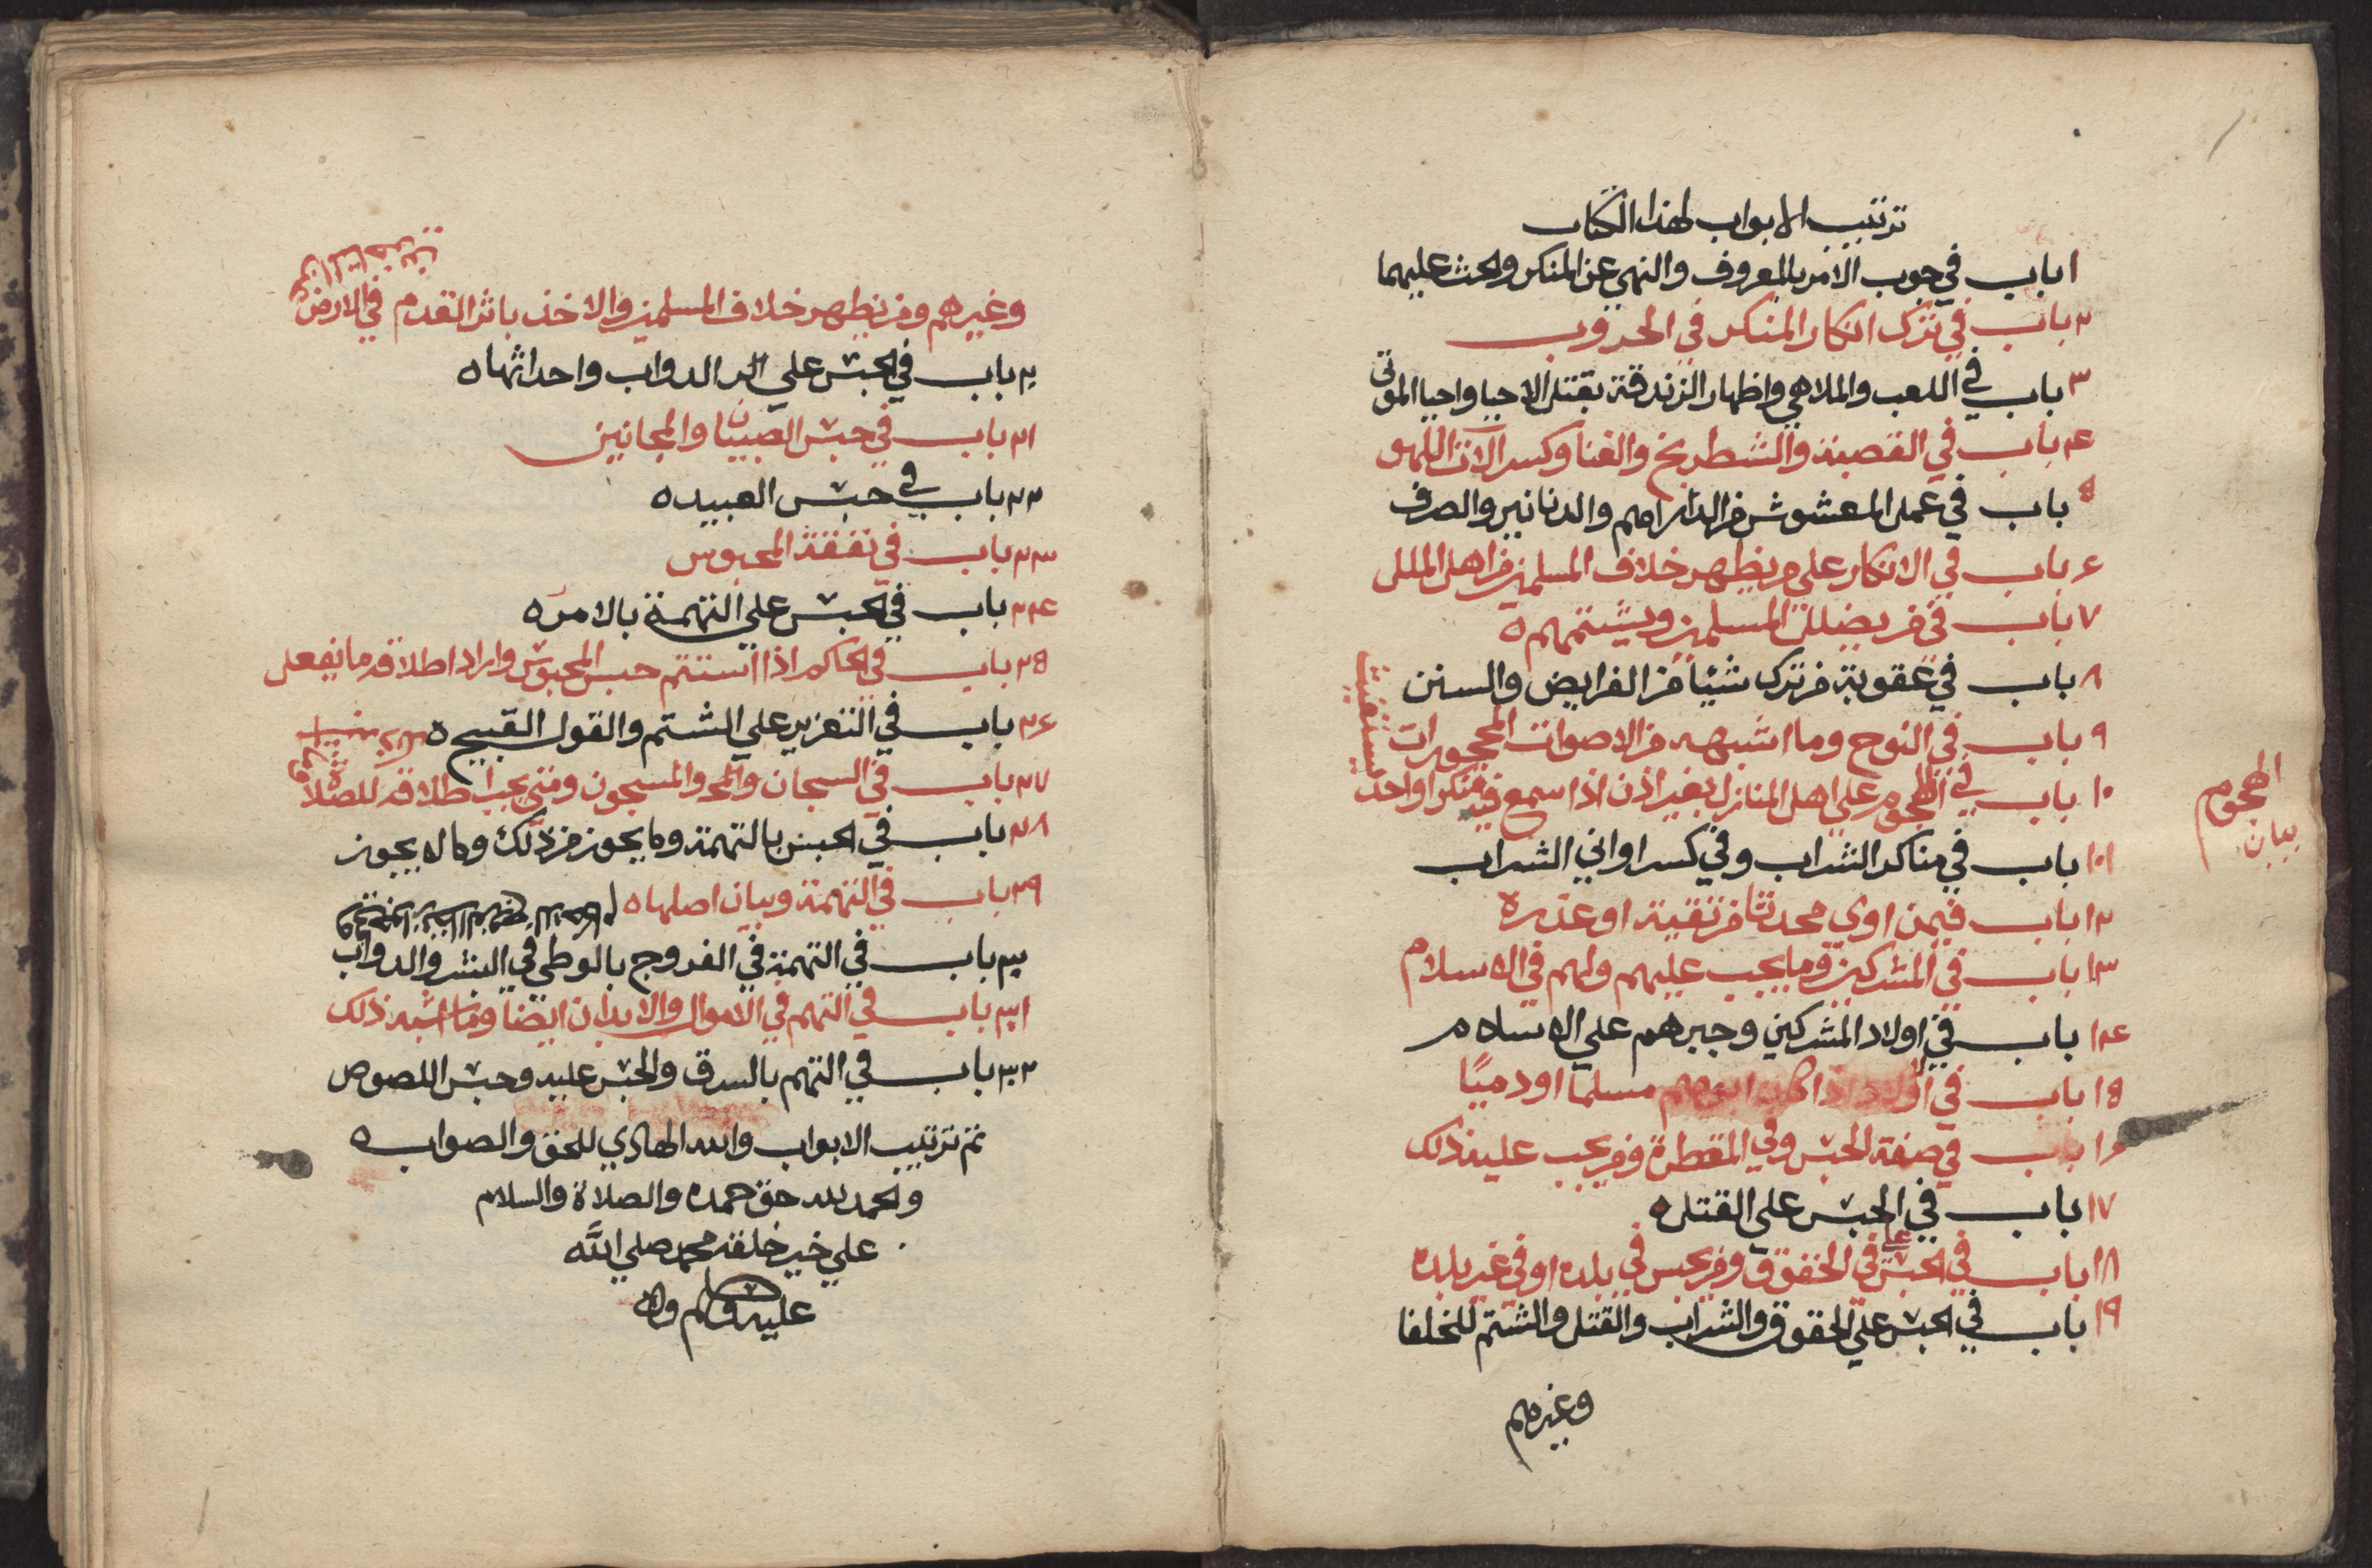 ترتيب الابواب لهذا الكتاب
١ باب في جوب الامر بالمعروف والنهي عن المنكر والحث عليهما
٢ باب في ترك انكار المنكر في الحروب
٣ باب في اللعب والملاهي واظهار الزندقة بقتل الاحيا واحيا الموتى
٤ باب في القصبة والشطرنج والغنا وكسر آلات اللهو
٥ باب في عمل المعشوش من الدراهم والدنانير والصرف
٦ باب في الانكار على من يظهر خلاف المسلمين من اهل الملل
٧ باب في من يضلل المسلمين ويشتمهم ه
٨ باب في عقوبة من ترك شيئا من الفرايض والسنن
٩ باب في النوح وما اشبهه من الاصوات المحجورات
١٠ باب في الهجوم على اهل المنازل بغير اذن اذا سمع فيه منكر او احد
يستغيث
الهجوم
بيان
١١ باب في مناكر الشراب وفي كسر اواني الشراب
١٢ باب فيمن اوى محدثا من تقية او غيره
١٣ باب في المشركين وما يجب عليهم ولهم في الاسلام
١٤ باب في اولاد المشركين وجبرهم على الاسلام
١٥ باب في اولاد اذا كان ابوهم مسلما او دميًا
١٦ باب في صفة الحبس وفي المقطرة ومن يجب عليه ذلك
١٧ باب في الحبس على القتل ه
١٨ باب في الحبس على في الحقوق ومن يحبس في بلده او في غير بلده
١٩ باب في الحبس على الحقوق والشراب والقتل والشتم للخلفا
وغيرهم
وغيرهم ومن يظهر خلاف المسلمين والاخذ باثر القدم في الارض
٢٠ باب في الحبس على اثر الدواب واحداثها ه
٢١ باب في حبس الصبيان والمجانين
٢٢ باب في حبس العبيد ه
٢٣ باب في نفقة المحبوس
٢٤ باب في الحبس على التهمة بالامر ه
٢٥ باب في الحاكم اذا استتم حبس المحبوس واراد اطلاقه ما يفعل
٢٦ باب في التعزير على الشتم والقول القبيح ه
٢٧ باب في السجان والسجن والمسجون ومتى يجب اطلاقه للصلاة
٢٨ باب في الحبس بالتهمة وما يجوز من ذلك وما لا يجوز
٢٩ باب في التهمة وبيان اصلها ه
٣٠ باب في التهمة في الفروج بالوطي في البشر والدواب
٣١ باب في التهم في الاموال والابدان ايضا وما اشبه ذلك
٣٢ باب في التهم بالسرق والحبس عليه وحبس اللصوص
تم ترتيب الابواب والله الهادي للحق والصواب ه
والحمد لله حق حمده والصلاة والسلام
على خير خلقه محمد صلى الله
عليه وسلم